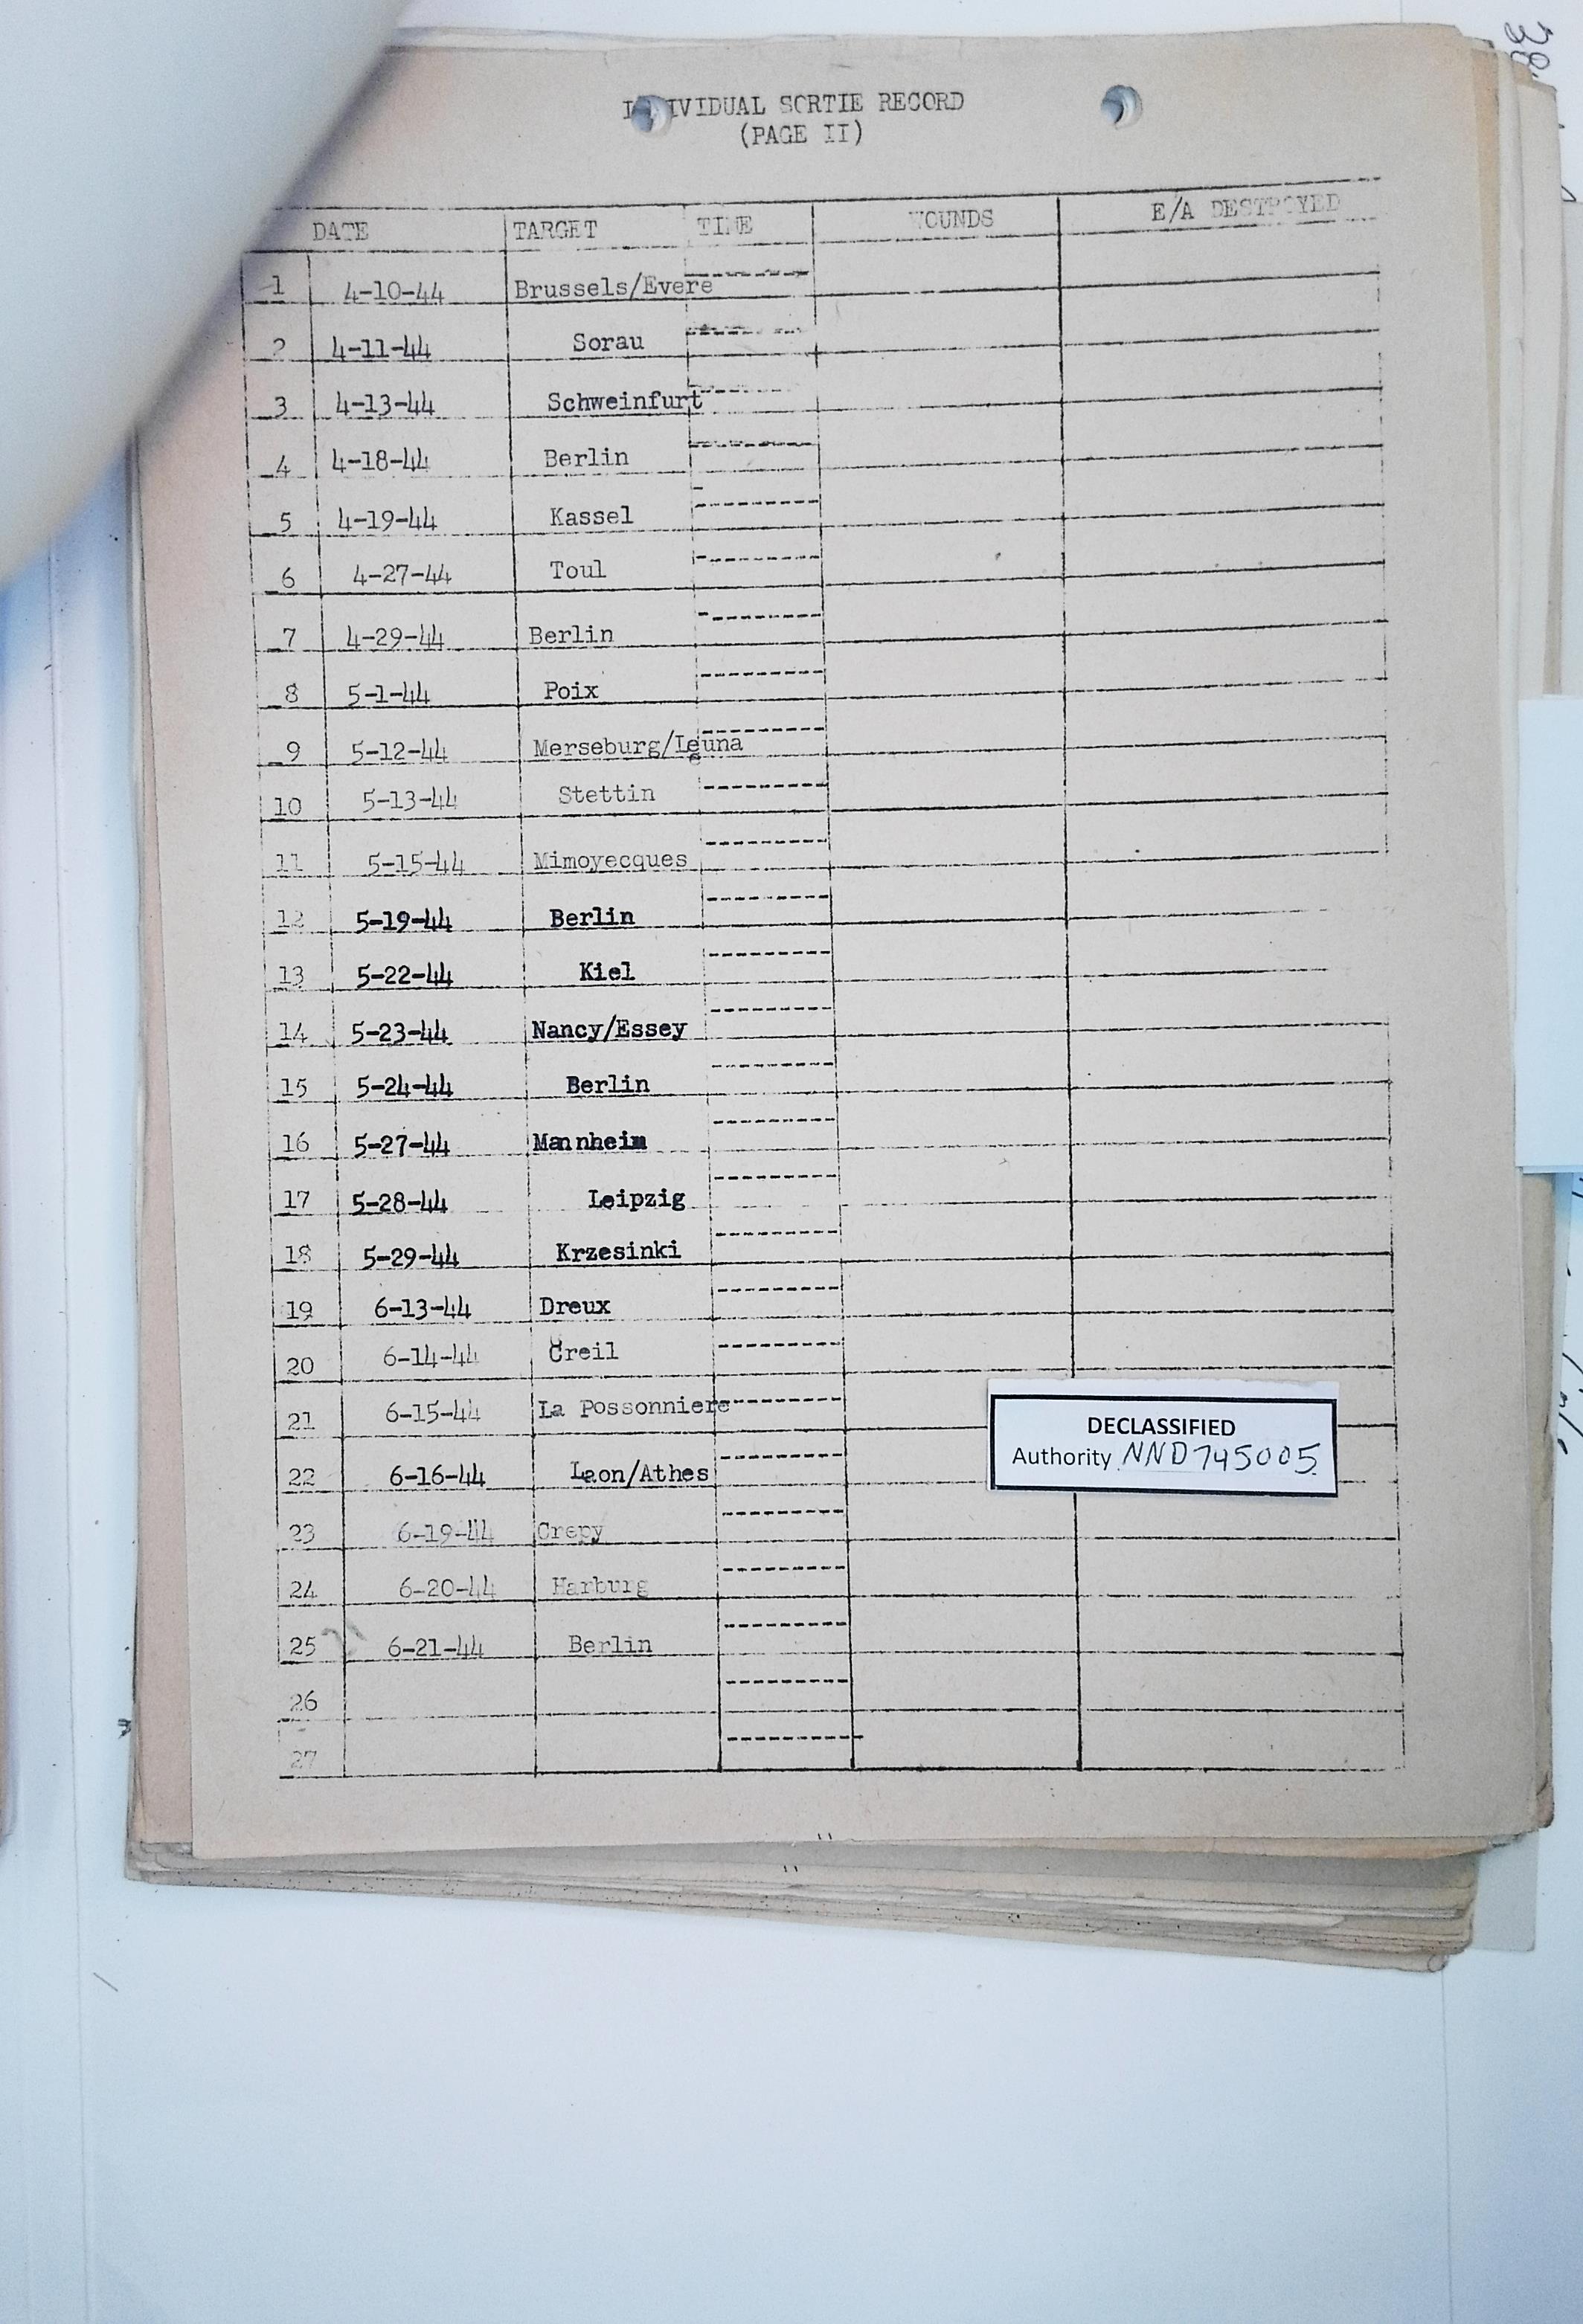 INDIVIDUAL SORTIE RECORD
(PAGE II)
DATE TARGET TIME WOUNDS E/A DESTROYED
1 4-10-44 Brussels/Evere
2 4-11-44 Sorau
3 4-13-44 Schweinfurt
4 4-18-44 Berlin
5 4-19-44 Kassel
6 4-27-44 Toul
7 4-29-44 Berlin
8 5-1-44 Poix
9 5-12-44 Merseburg/Leuna
10 5-13-44 Stettin
11 5-15-44 Mimoyecques
12 5-19-44 Berlin
13 5-22-44 Kiel
14 5-23-44 Nancy/Essey
15 5-24-44 Berlin
16 5-27-44 Mannheim
17 5-28-44 Leipzig
18 5-29-44 Krzesinki
19 6-13-44 Dreux
20 6-14-44 Creil
21 6-15-44 La Possonniere
22 6-16-44 Laon/Athes
23 6-19-44 Crepy
24 6-20-44 Harburg
25 6-21-44 Berlin
26
27
DECLASSIFIED
Authority NND745005